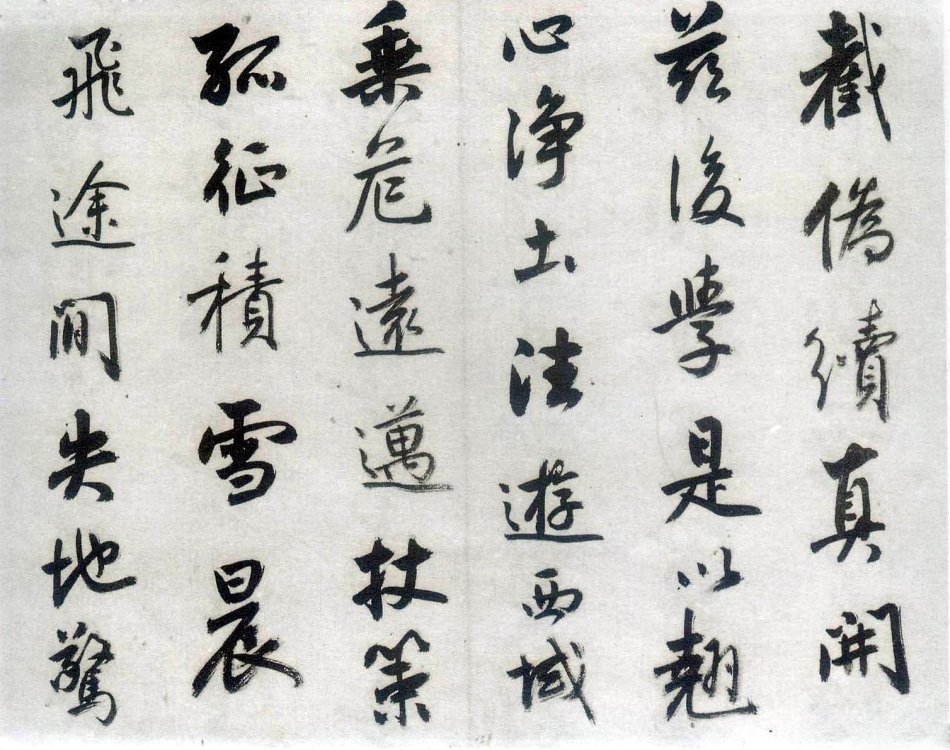 截偽續真開
茲後學是以翹
心浄土法遊西域
乗危遠邁杖策
孤征積雪晨
飛途間失地驚